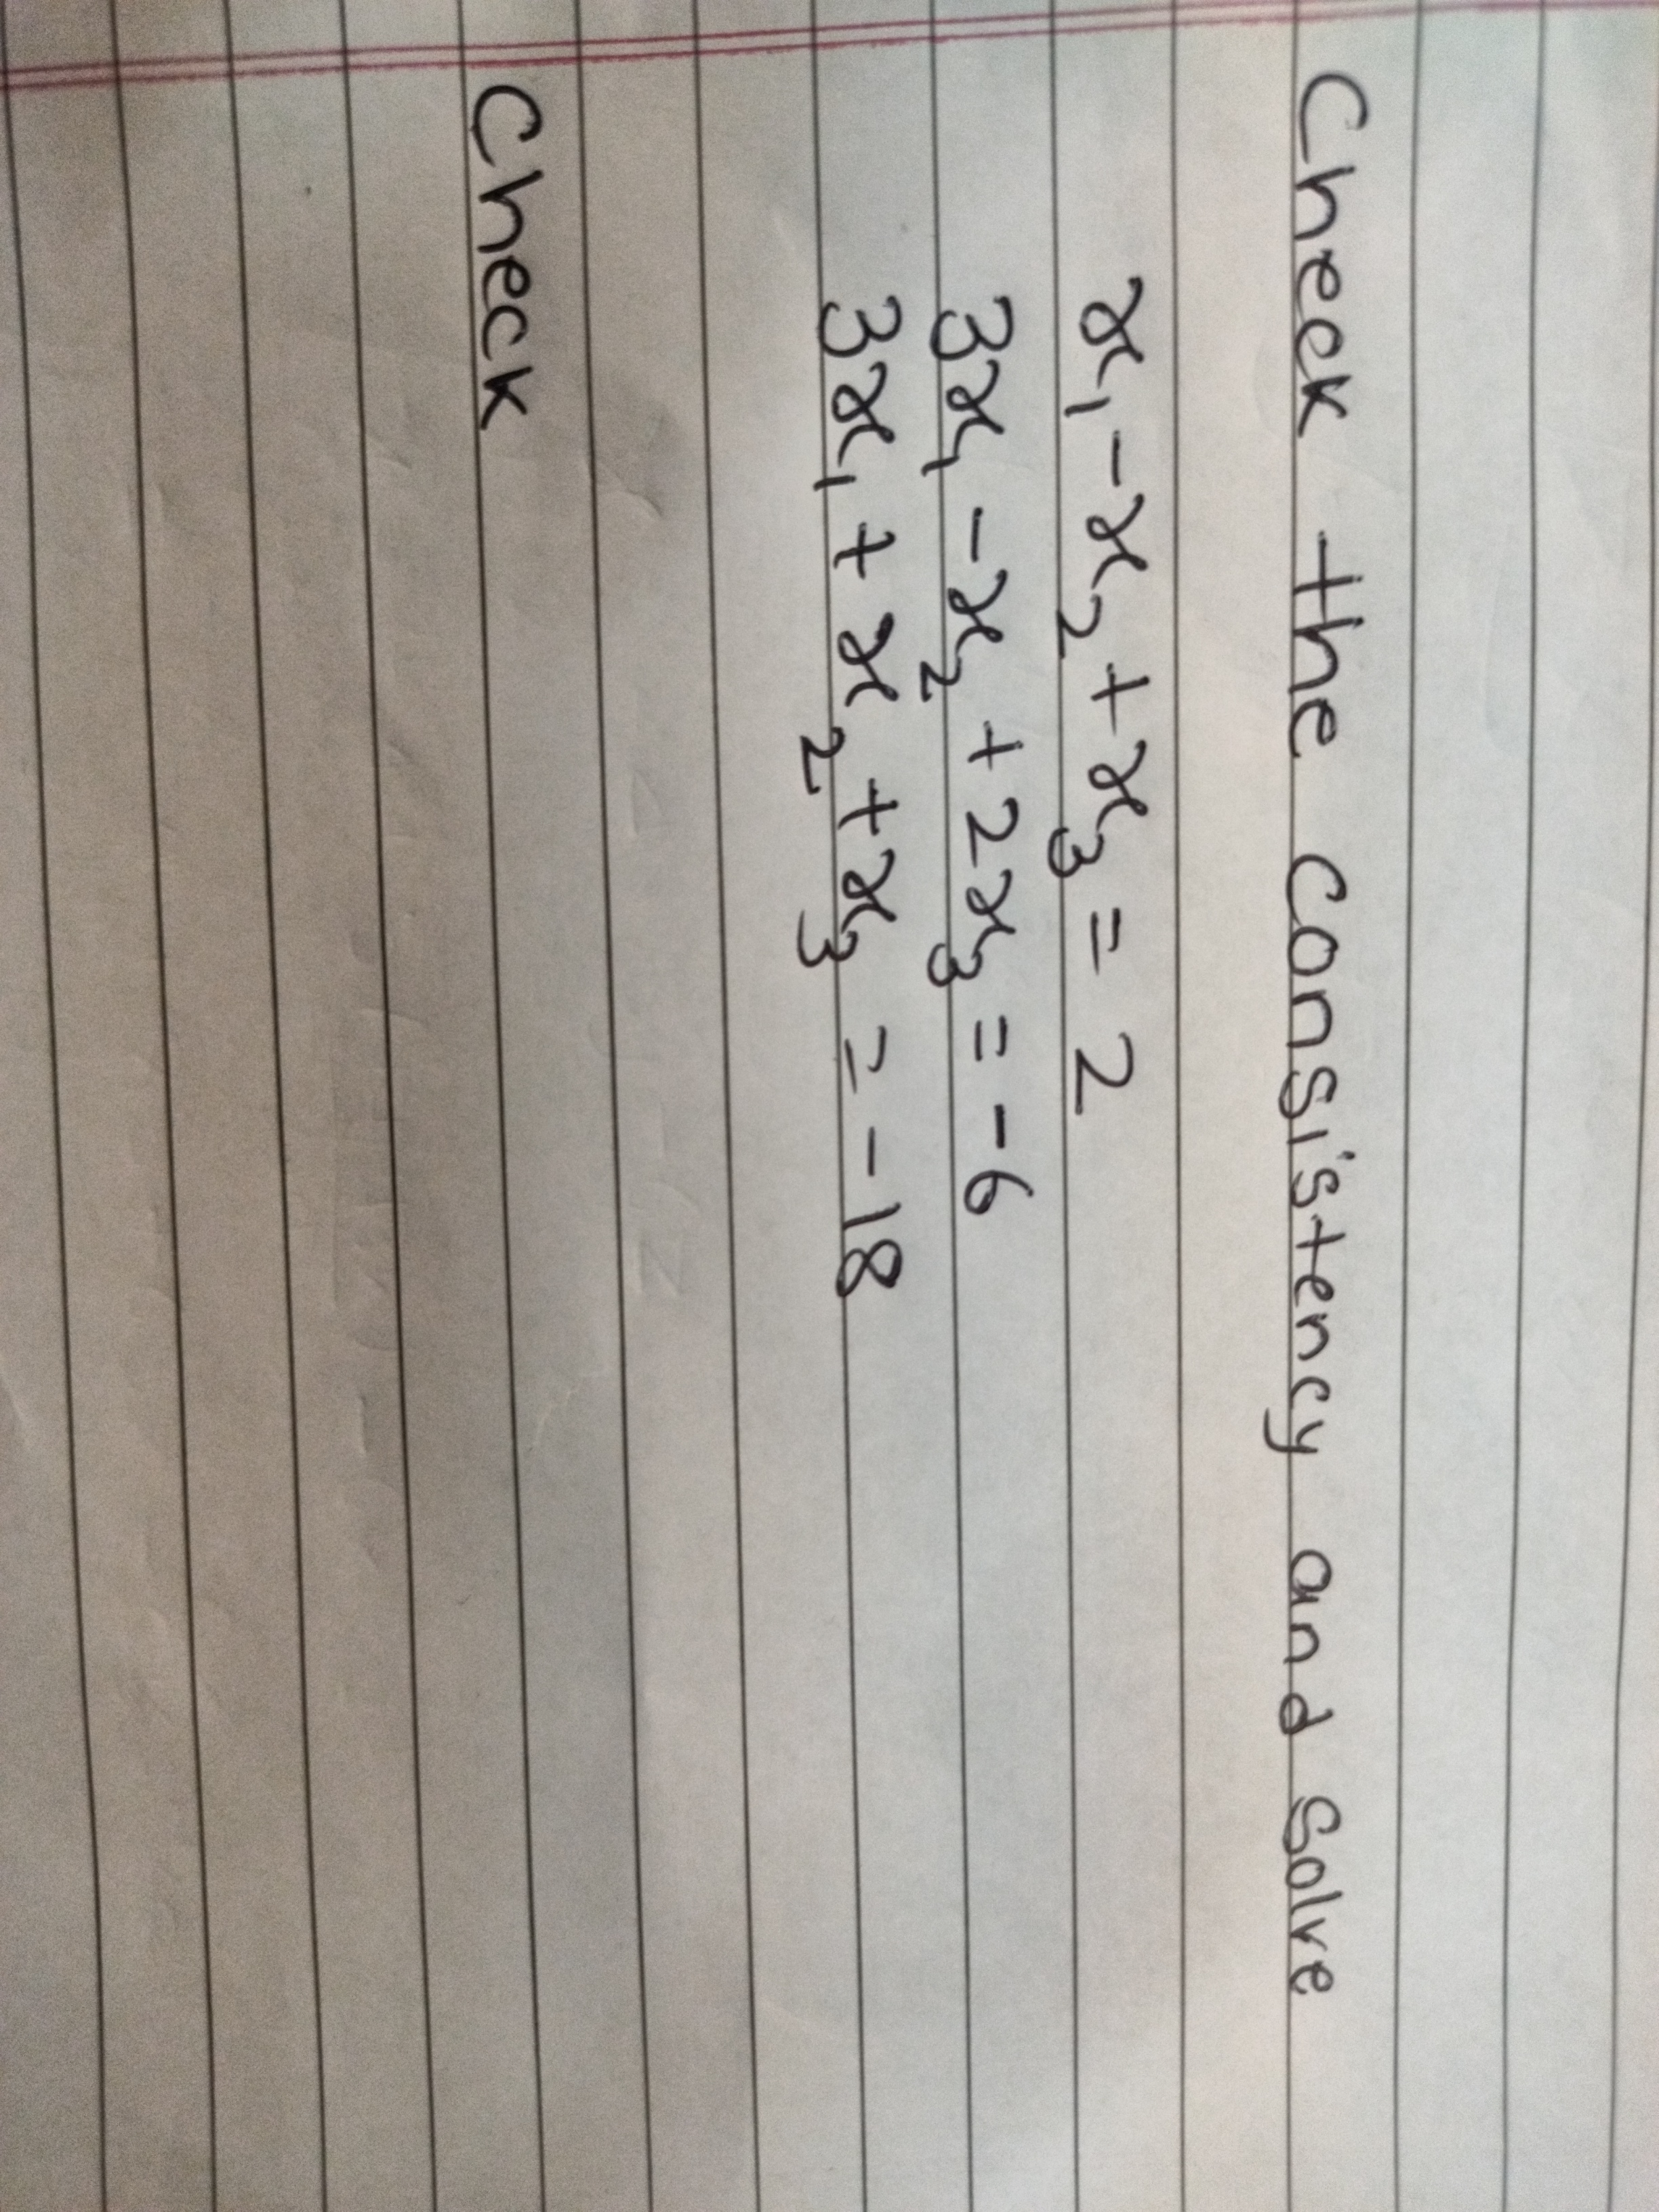 Check the consistency and solve
x₁ - x₂ + x₃ = 2
3x₁ - x₂ + 2x₃ = -6
3x₁ + x₂ + x₃ = -18
Check